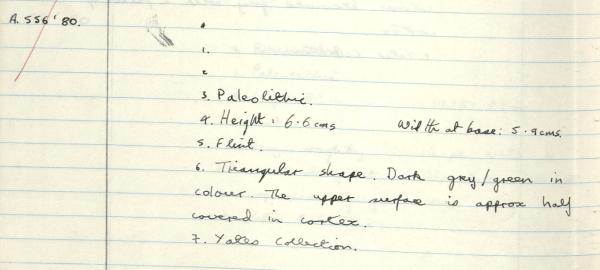 A. 556' 80.
1.
2
3. Paleolithic.
4. Height: 6.6cms Width at base: 5.9cms.
5. Flint.
6. Triangular shape. Dark grey/green in
colour. The upper surface is approx half
covered in cortex.
7. Yates Collection.